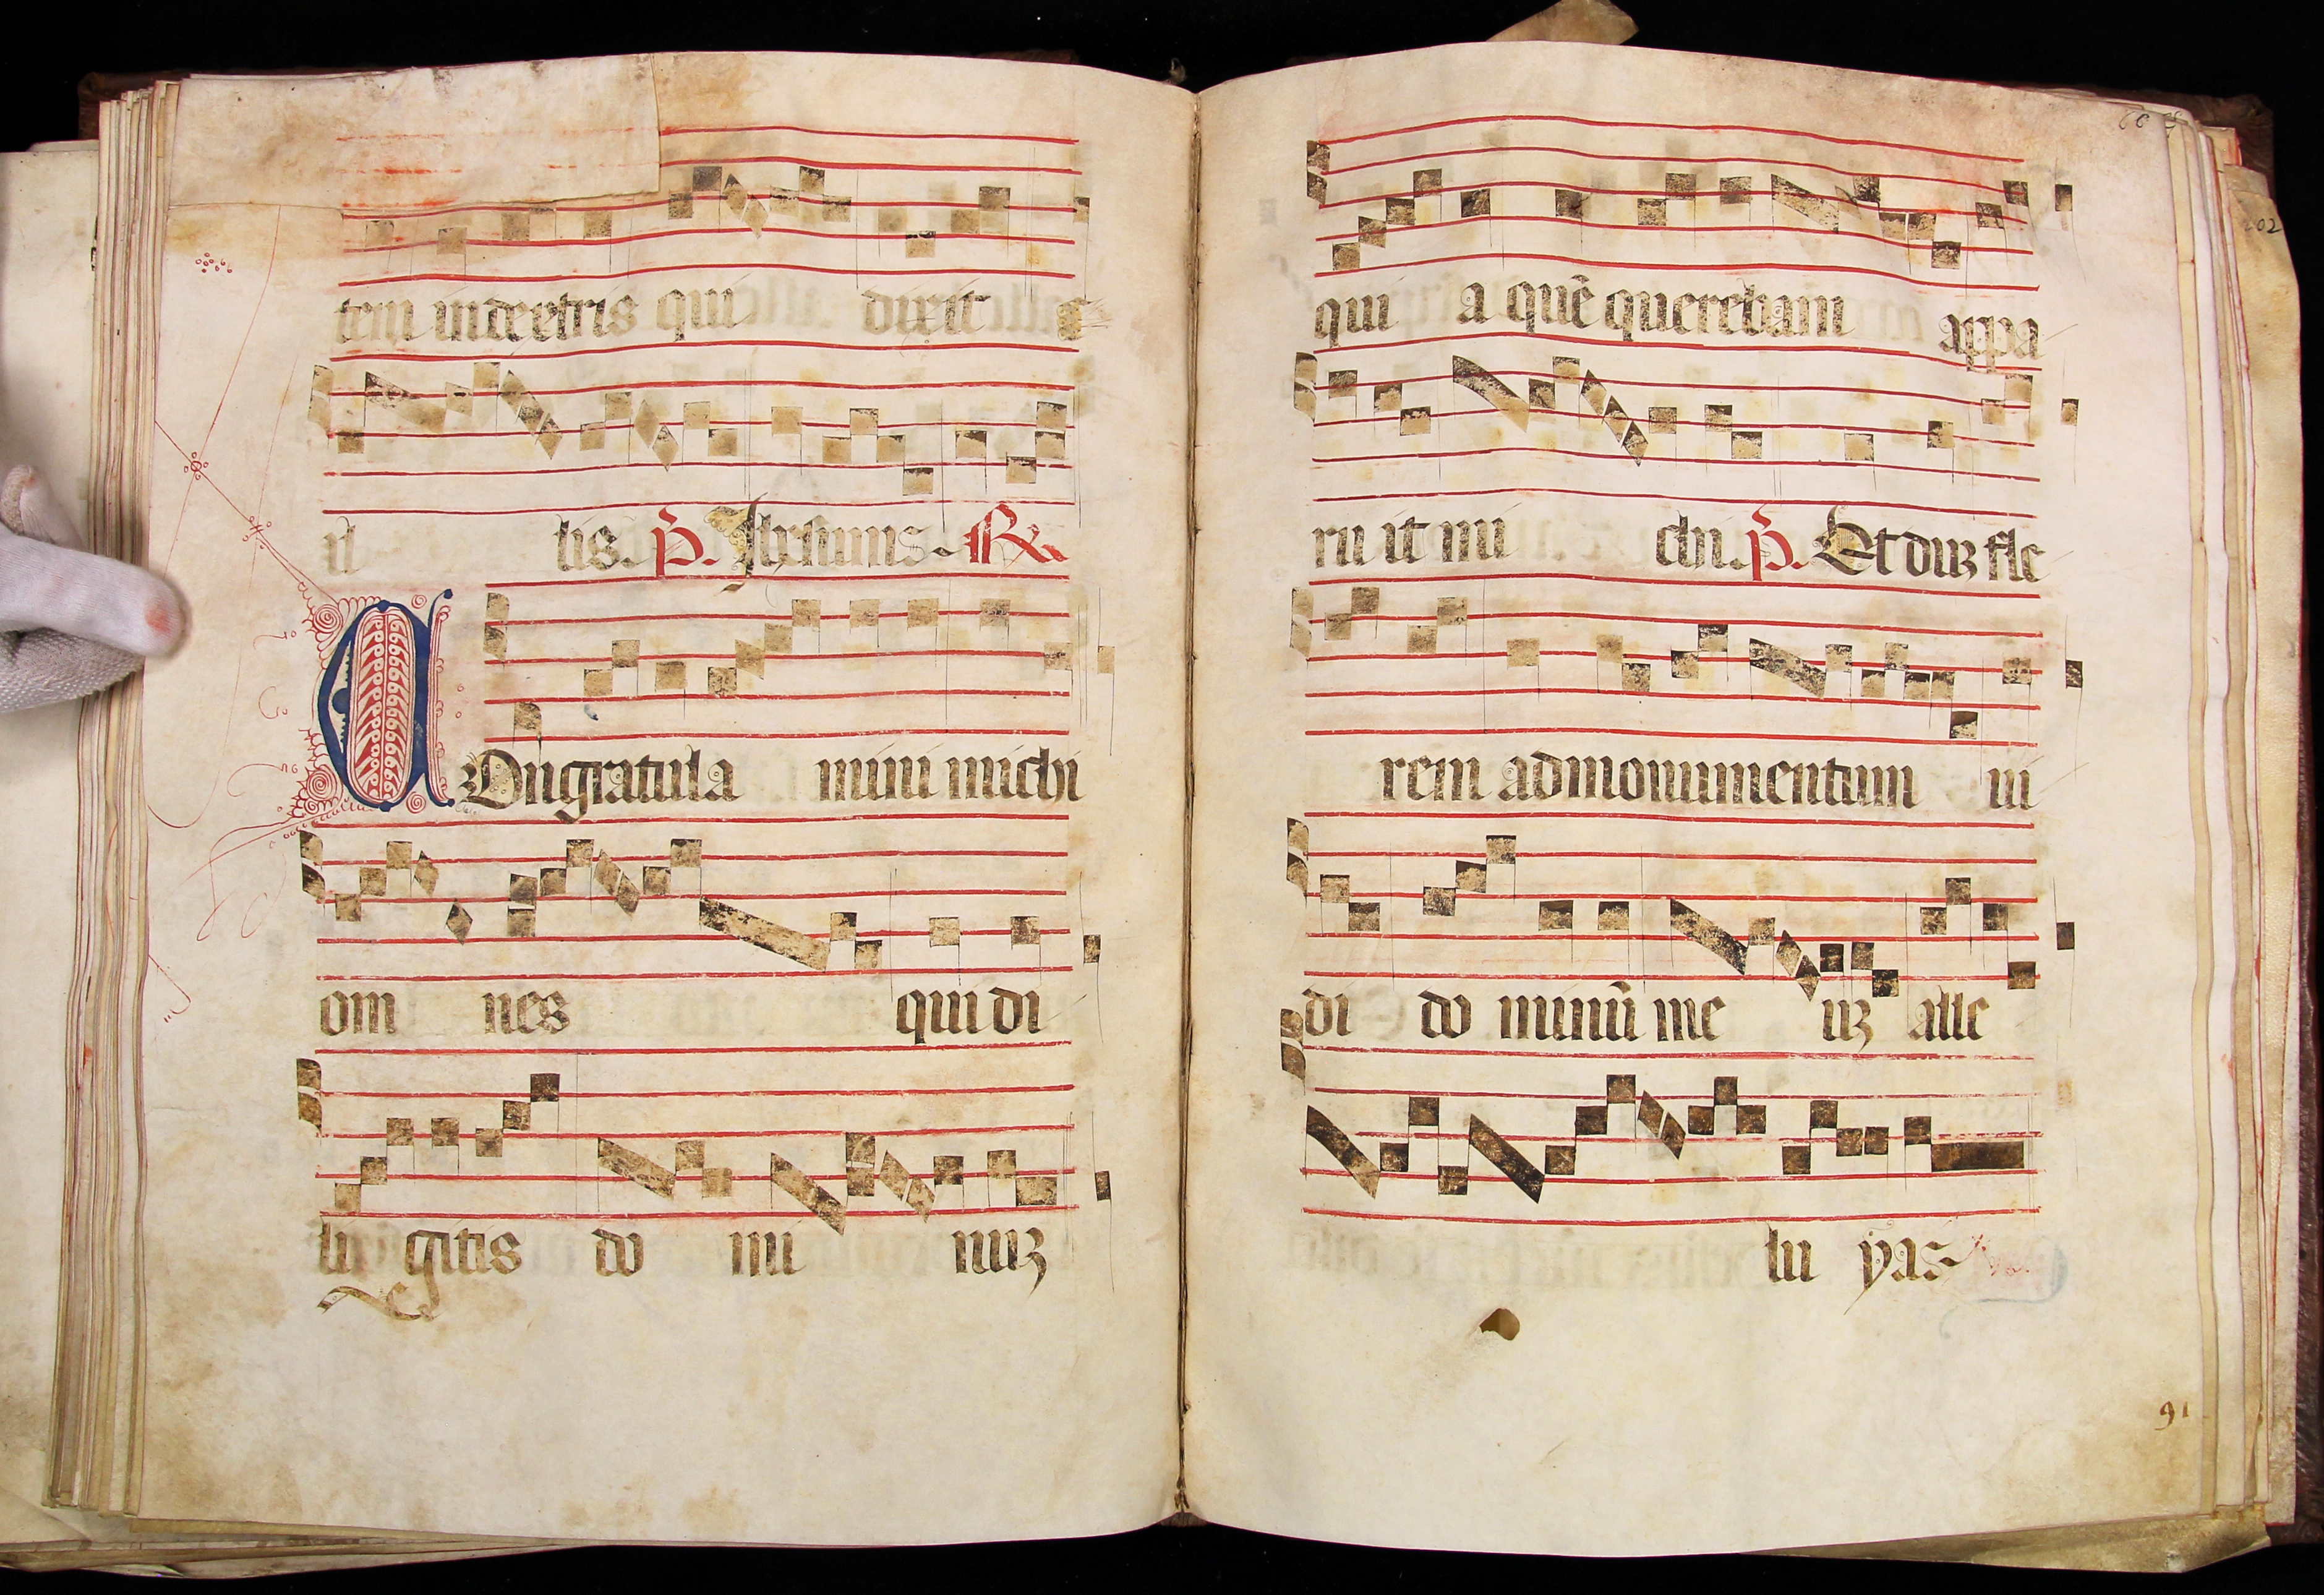 tem in dextris qui dixit
il lis. p̃. Ihesum. R
COngratula mini michi
om nes qui di
li gitis do mi nuz
66
qui a quẽ querebam appa
ru it mi chi. p̃. Et duz fle
rem ad monumentum ui
di do minũ me uz alle
lu yas
91
202